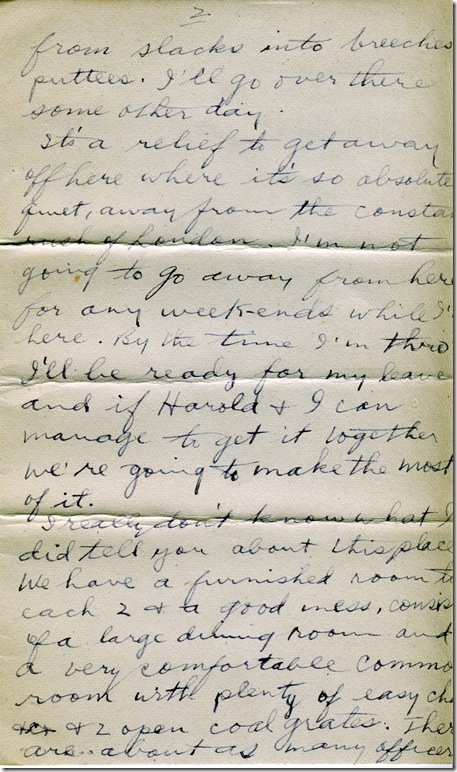 2
from slacks into breeches
puttees. I'll go over there
some other day.
It's a relief to get away
off here where it's so absolute
quiet, away from the constan
rush of London. I'm not
going to go away from here
for any week-ends while I'
here. By the time I'm thro
I'll be ready for my leave
and if Harold & I can
manage to get it together
we're going to make the most
of it.
I really don't know what I
did tell you about this place
We have a furnished room to
each 2 & a good mess, consis
of a large dining room and
a very comfortable commo
room with plenty of easy cha
& 2 open coal grates. Ther
are about as many officer